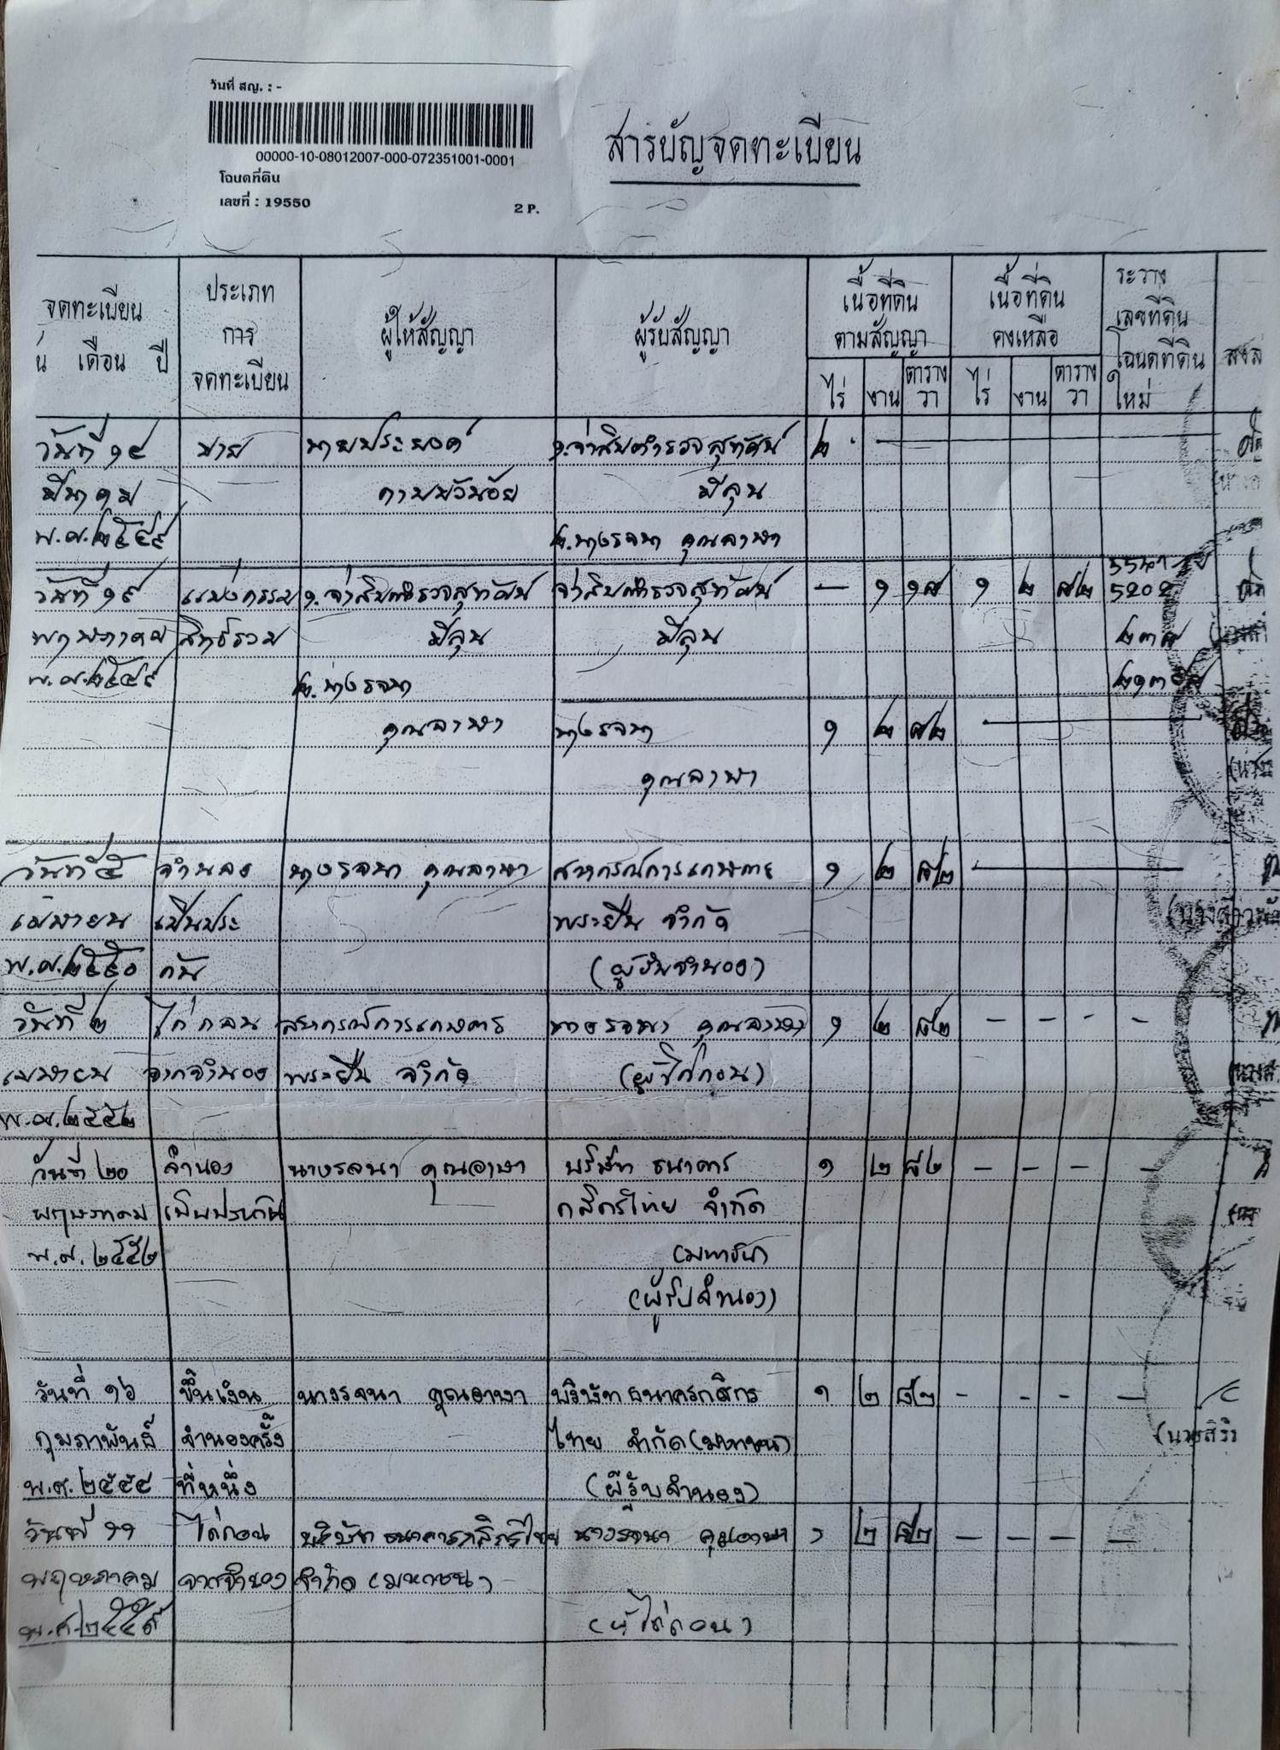 วันที่ สญ. : -
00000-10-08012007-000-072351001-0001
โฉนดที่ดิน
เลขที่ : 19550
2 P.
สารบัญจดทะเบียน
จดทะเบียน
น เดือน ปี
ประเภท
การ
จดทะเบียน
ผู้ให้สัญญา
ผู้รับสัญญา
เนื้อที่ดิน
ตามสัญญา
ไร่ งาน ตาราง
วา
เนื้อที่ดิน
คงเหลือ
ไร่ งาน ตาราง
วา
ระวาง
เลขที่ดิน
โฉนดที่ดิน
ใหม่
วันที่ ๑๔ ขาย นายประยงค์ ๑.จ่าสิบตำรวจสุทัศน์ ๒
มีนาคม มีลุน
พ.ศ.๒๕๔๙ ๒.นางรจนา คุณอาษา
วันที่ ๑๙ แบ่งกรรม ๑.จ่าสิบตำรวจสุทัศน์ จ่าสิบตำรวจสุทัศน์ — ๑ ๑๘ ๑ ๒ ๘๒ 5202
พฤษภาคม สิทธิ์รวม มีลุน มีลุน
พ.ศ.๒๕๔๙ ๒.นางรจนา
คุณอาษา นางรจนา ๑ ๒ ๘๒
คุณอาษา
วันที่ ๕ จำนอง นางรจนา คุณอาษา สหกรณ์การเกษตร ๑ ๒ ๘๒
เมษายน เป็นประ พระยืน จำกัด
พ.ศ.๒๕๕๐ กัน (ผู้รับจำนอง)
วันที่ ๒ ไถ่ถอน สหกรณ์การเกษตร นางรจนา คุณอาษา ๑ ๒ ๘๒ - - - -
เมษายน จากจำนอง พระยืน จำกัด (ผู้ไถ่ถอน)
พ.ศ.๒๕๕๒
วันที่ ๒๐ จำนอง นางรจนา คุณอาษา บริษัท ธนาคาร ๑ ๒ ๘๒ - - - -
พฤษภาคม เป็นประกัน กสิกรไทย จำกัด
พ.ศ. ๒๕๕๒ (มหาชน)
(ผู้รับจำนอง)
วันที่ ๑๖ ขึ้นเงิน นางรจนา คุณอาษา บริษัท ธนาคารกสิกร ๑ ๒ ๘๒ - - - -
กุมภาพันธ์ จำนองครั้ง ไทย จำกัด (มหาชน) (นางสิริ
พ.ศ. ๒๕๕๔ ที่หนึ่ง (ผู้รับจำนอง)
วันที่ ๑๑ ไถ่ถอน บริษัท ธนาคารกสิกรไทย นางรจนา คุณอาษา ๑ ๒ ๘๒ - - - -
พฤษภาคม จากจำนอง จำกัด (มหาชน)
พ.ศ.๒๕๕๙ (ผู้ไถ่ถอน)